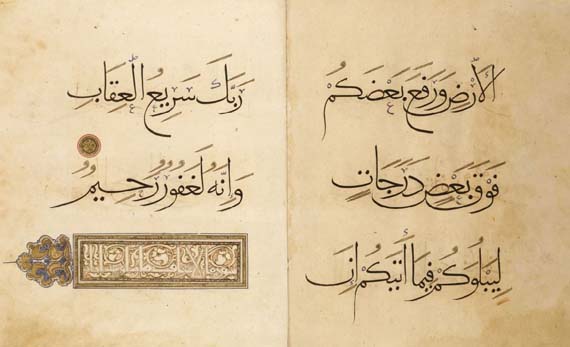 الْأَرْضِ وَرَفَعَ بَعْضَكُمْ
فَوْقَ بَعْضٍ دَرَجَاتٍ
لِيَبْلُوَكُمْ فِيمَا أَتَىٰكُمْ إِنَّ
رَبَّكَ سَرِيعُ الْعِقَابِ
وَإِنَّهُ لَغَفُورٌ رَحِيمٌ